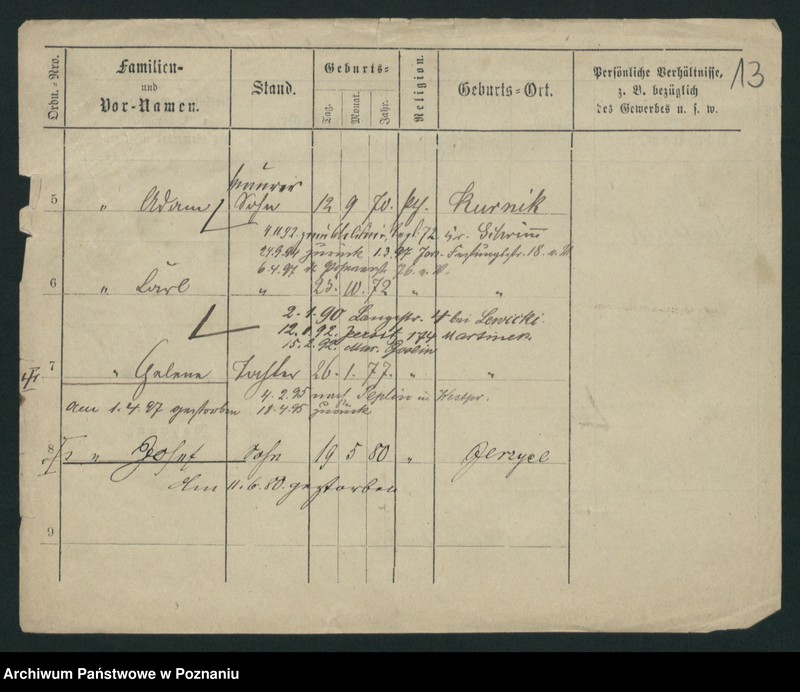 13
Ordn.-Nro.
Familien-
und
Vor-Namen.
Stand.
Geburts-
Tag.
Monat.
Jahr.
Religion.
Geburts-Ort.
Persönliche Verhältnisse,
z. B. bezüglich
des Gewerbes u. s. w.
Maurer
5 " Adam Sohn 12 9 70. Kurnik
4.11.92 72
24.9.94 zurück 1.3.97 18
6.4.97
6 " Carl " 23. 10. 72 " "
2.1.90 Langestr. 4 bei Lewicki
12.1.92. Jersitz 174
15.2.92. Mur. Goslin
7 " Helene Tochter 26. 1. 77. " "
4.2.95 nach Peplin in Westpr.
am 1.4.97 gestorben 18.4.95 zurück
8 " Josef Sohn 19 5 80 "
Am 11.6.80. gestorben
9
Archiwum Państwowe w Poznaniu